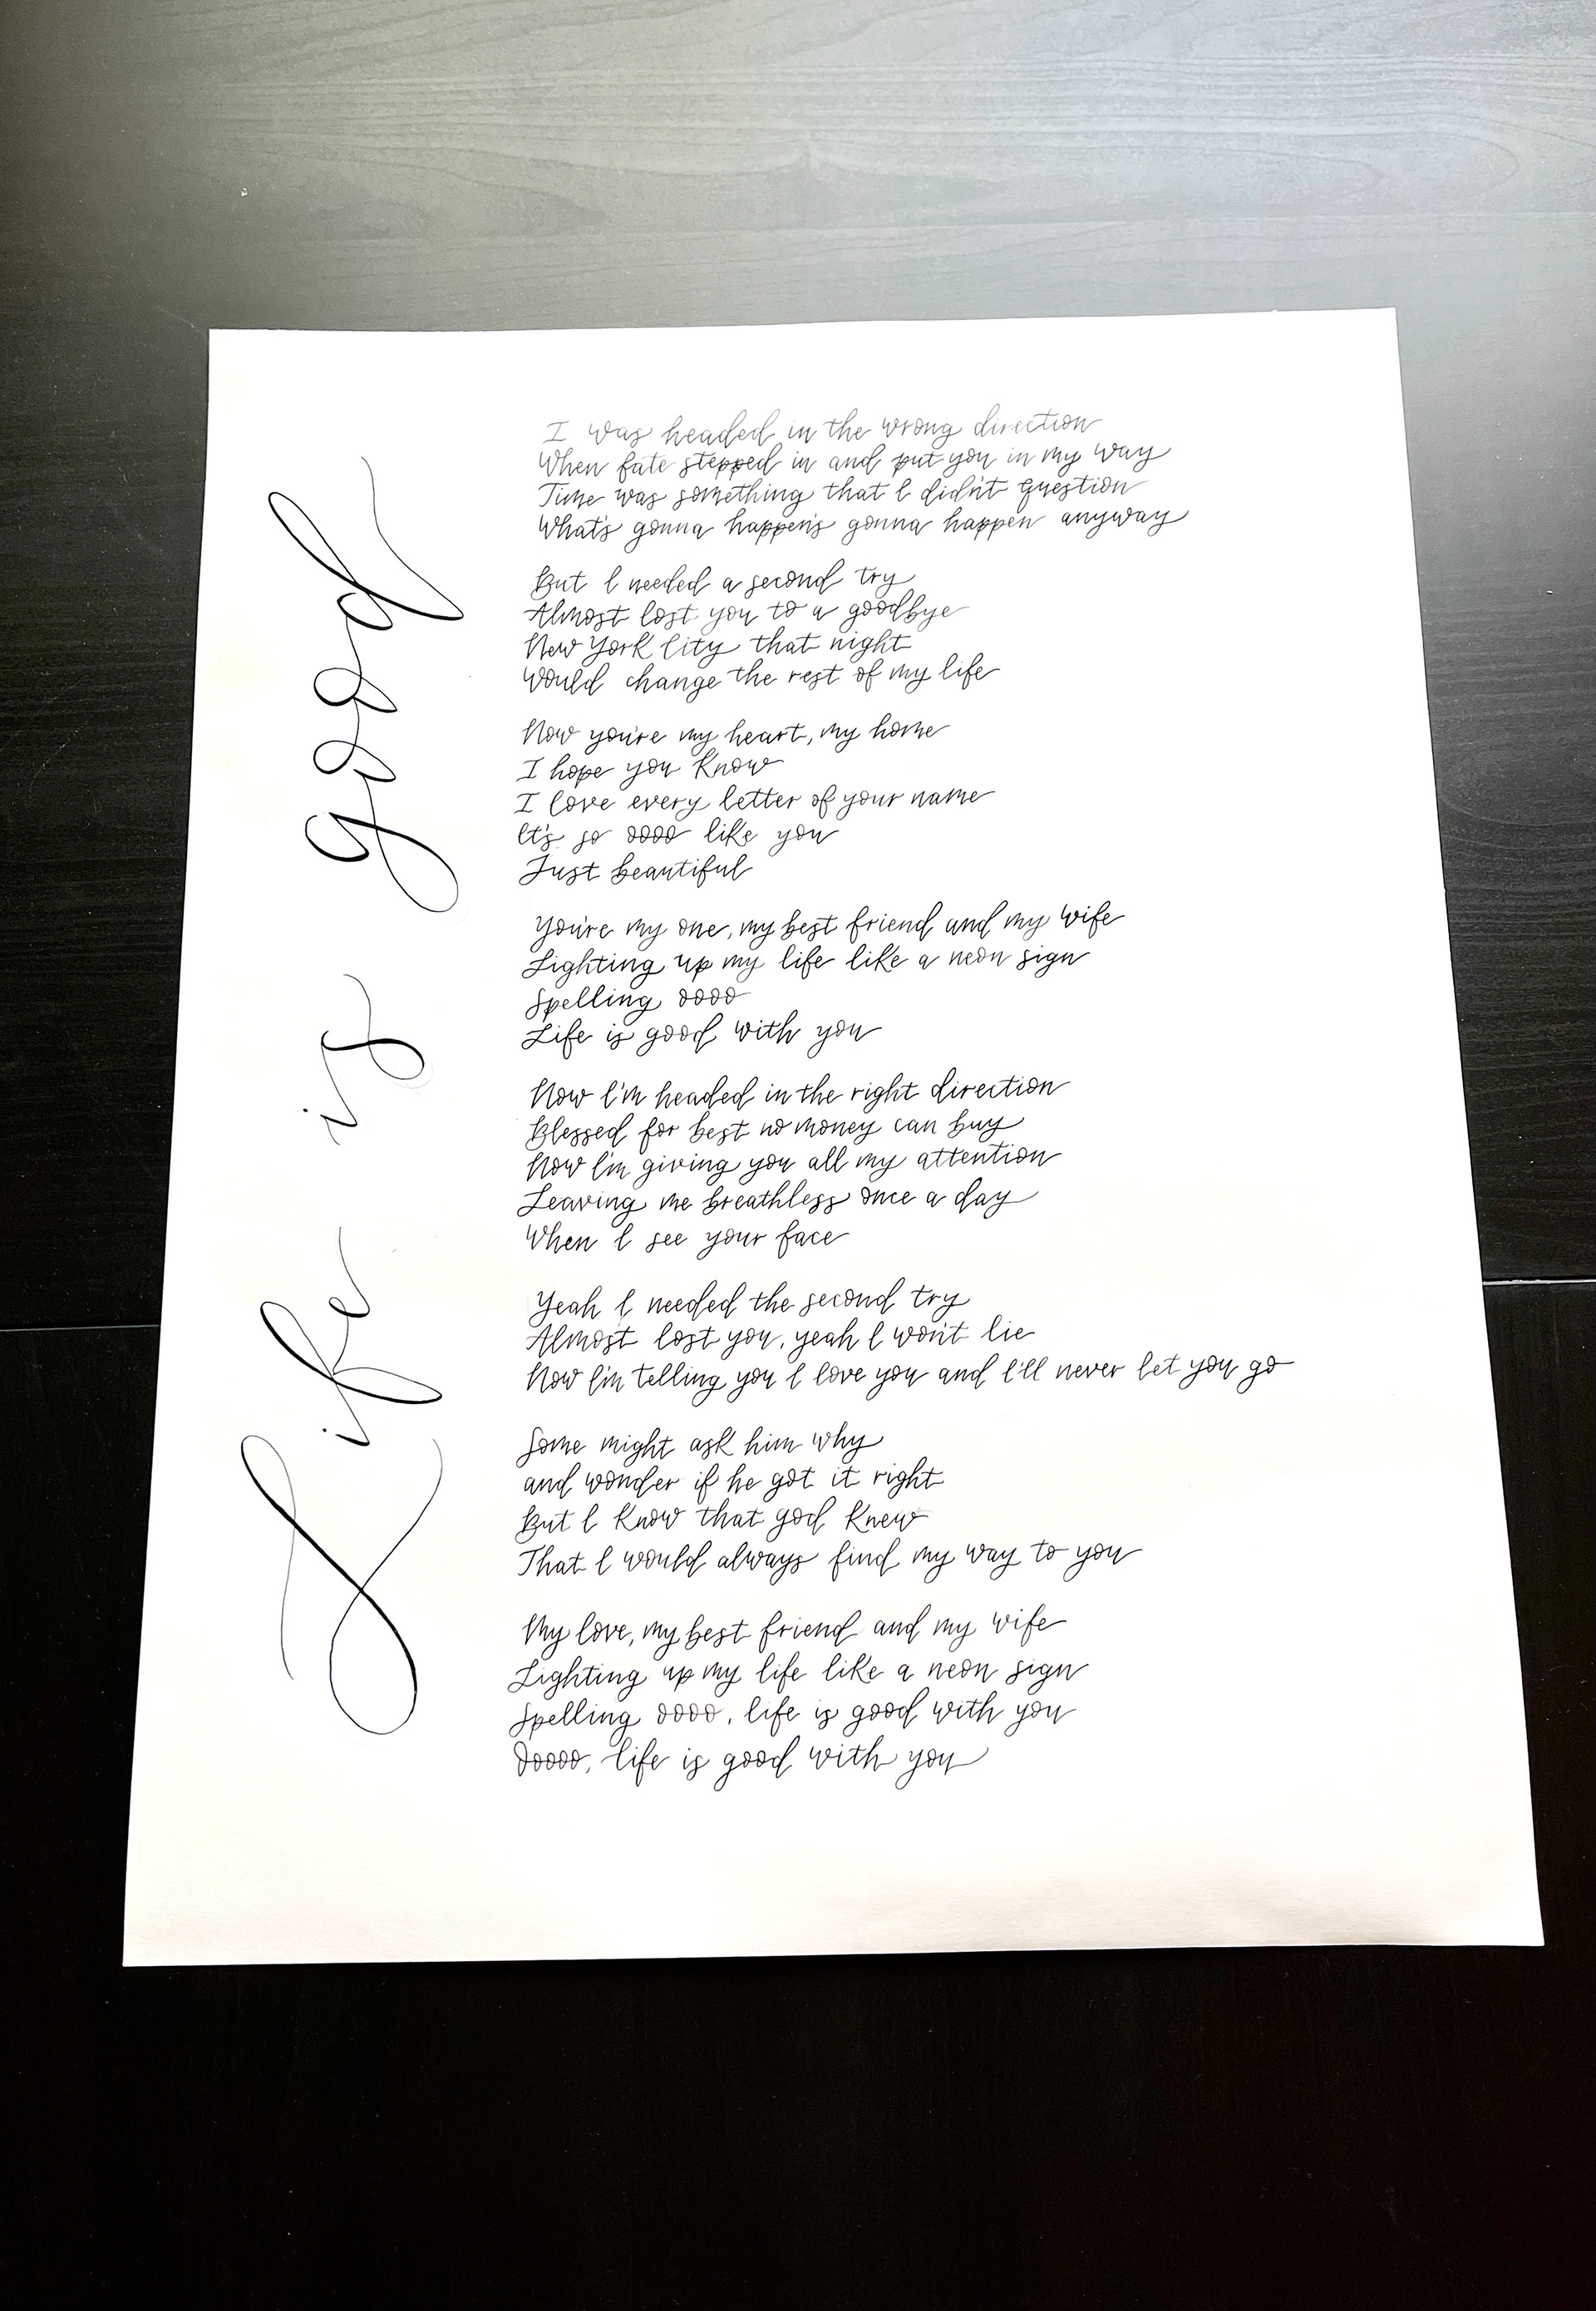 Life is good
I was headed in the wrong direction
When fate stepped in and put you in my way
Time was something that I didn't question
What's gonna happen's gonna happen anyway
But I needed a second try
Almost lost you to a goodbye
New York City that night
Would change the rest of my life
Now you're my heart, my home
I hope you know
I love every letter of your name
It's so oooo like you
Just beautiful
You're my one, my best friend and my wife
Lighting up my life like a neon sign
Spelling oooo
Life is good with you
Now I'm headed in the right direction
Blessed for best no money can buy
Now I'm giving you all my attention
Leaving me breathless once a day
When I see your face
Yeah I needed the second try
Almost lost you, yeah I won't lie
Now I'm telling you I love you and I'll never let you go
Some might ask him why
and wonder if he got it right
But I know that god knew
That I would always find my way to you
My love, my best friend and my wife
Lighting up my life like a neon sign
Spelling oooo, life is good with you
Ooooo, life is good with you